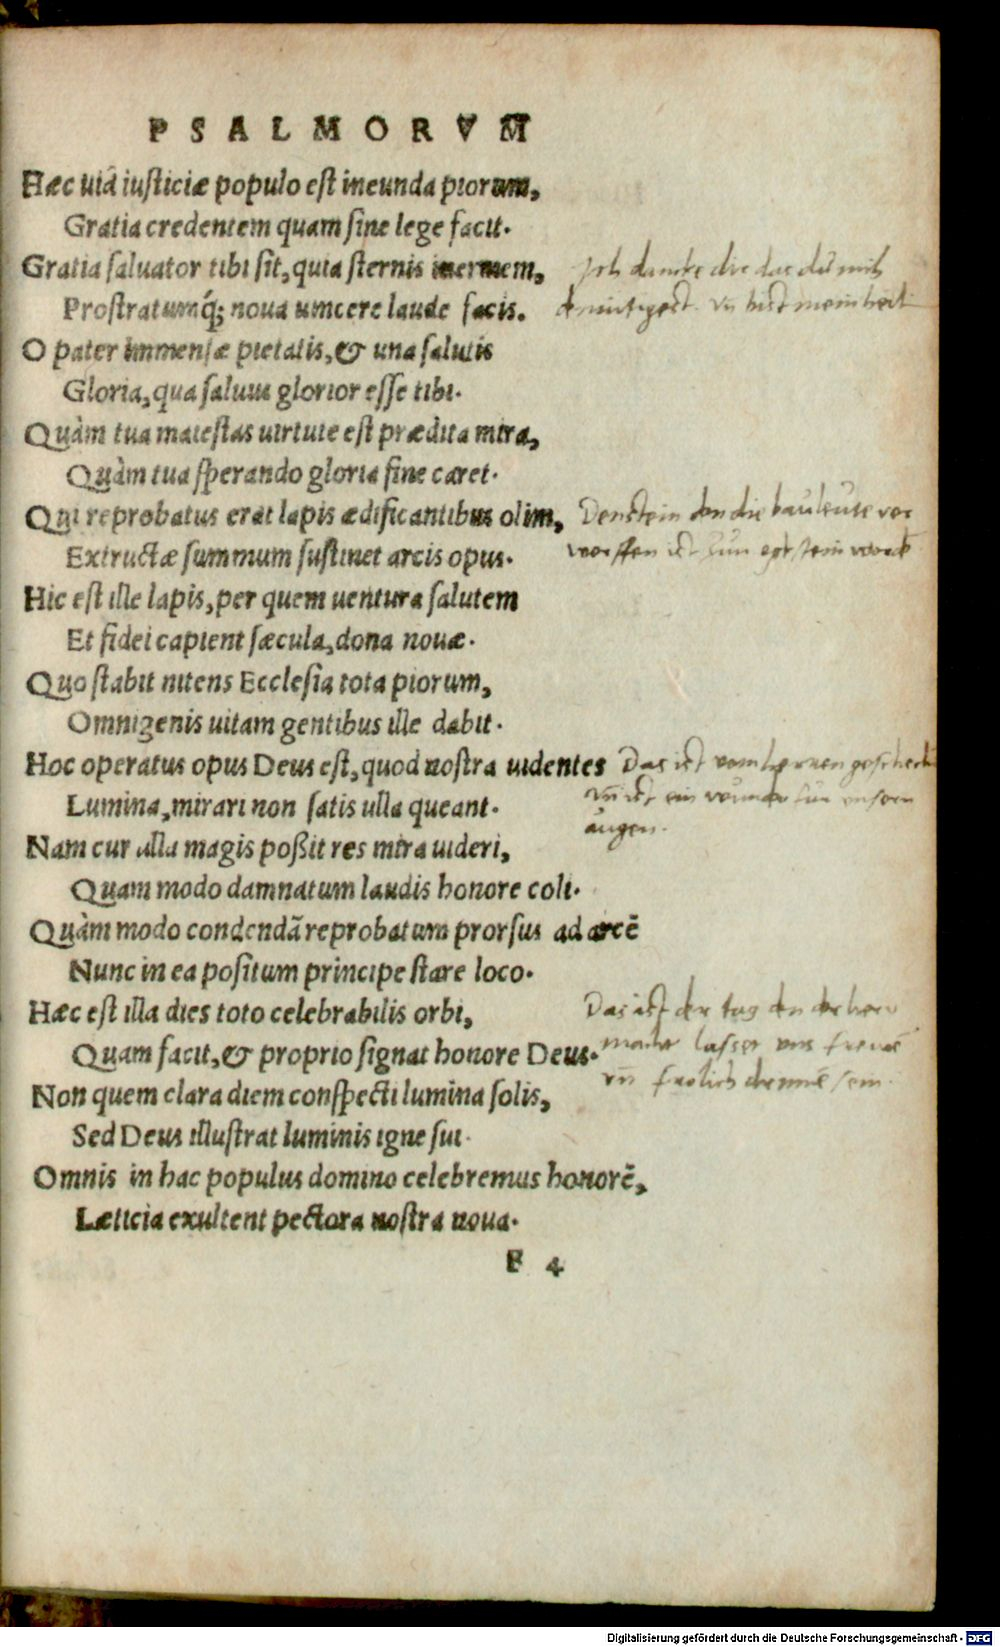 PSALMORVM
Hæc uia iusticiæ populo est ineunda piorum,
Gratia credentem quam sine lege facit.
Gratia saluator tibi sit, quia sternis inermem,
Prostratumq́; noua uincere laude facis.
O pater immensæ pietatis, & una salutis
Gloria, qua saluus glorior esse tibi.
Quàm tua maiestas uirtute est prædita mira,
Quàm tua sperando gloria fine caret.
Qui reprobatus erat lapis ædificantibus olim,
Extructæ summum sustinet arcis opus.
Hic est ille lapis, per quem uentura salutem
Et fidei capient sæcula, dona nouæ.
Quo stabit nitens Ecclesia tota piorum,
Omnigenis uitam gentibus ille dabit.
Hoc operatus opus Deus est, quod nostra uidentes
Lumina, mirari non satis ulla queant.
Nam cur ulla magis poßit res mira uideri,
Quam modo damnatum laudis honore coli.
Quàm modo condendã reprobatum prorsus ad arcẽ
Nunc in ea positum principe stare loco.
Hæc est illa dies toto celebrabilis orbi,
Quam facit, & proprio signat honore Deus.
Non quem clara diem conspecti lumina solis,
Sed Deus illustrat luminis igne sui.
Omnis in hac populus domino celebremus honorẽ,
Læticia exultent pectora nostra noua.
F 4
Ich dancke dir das du mich
demutigest vñ bist mein heil
Den stein den die bauleute ver
worffen ist zum eckstein
Das ist vom herren
vñ ist ein wunder fur
augen.
Das ist der tag den der herr
macht lasset vns frewẽ
vñ frolich sein.
Digitalisierung gefördert durch die Deutsche Forschungsgemeinschaft - DFG